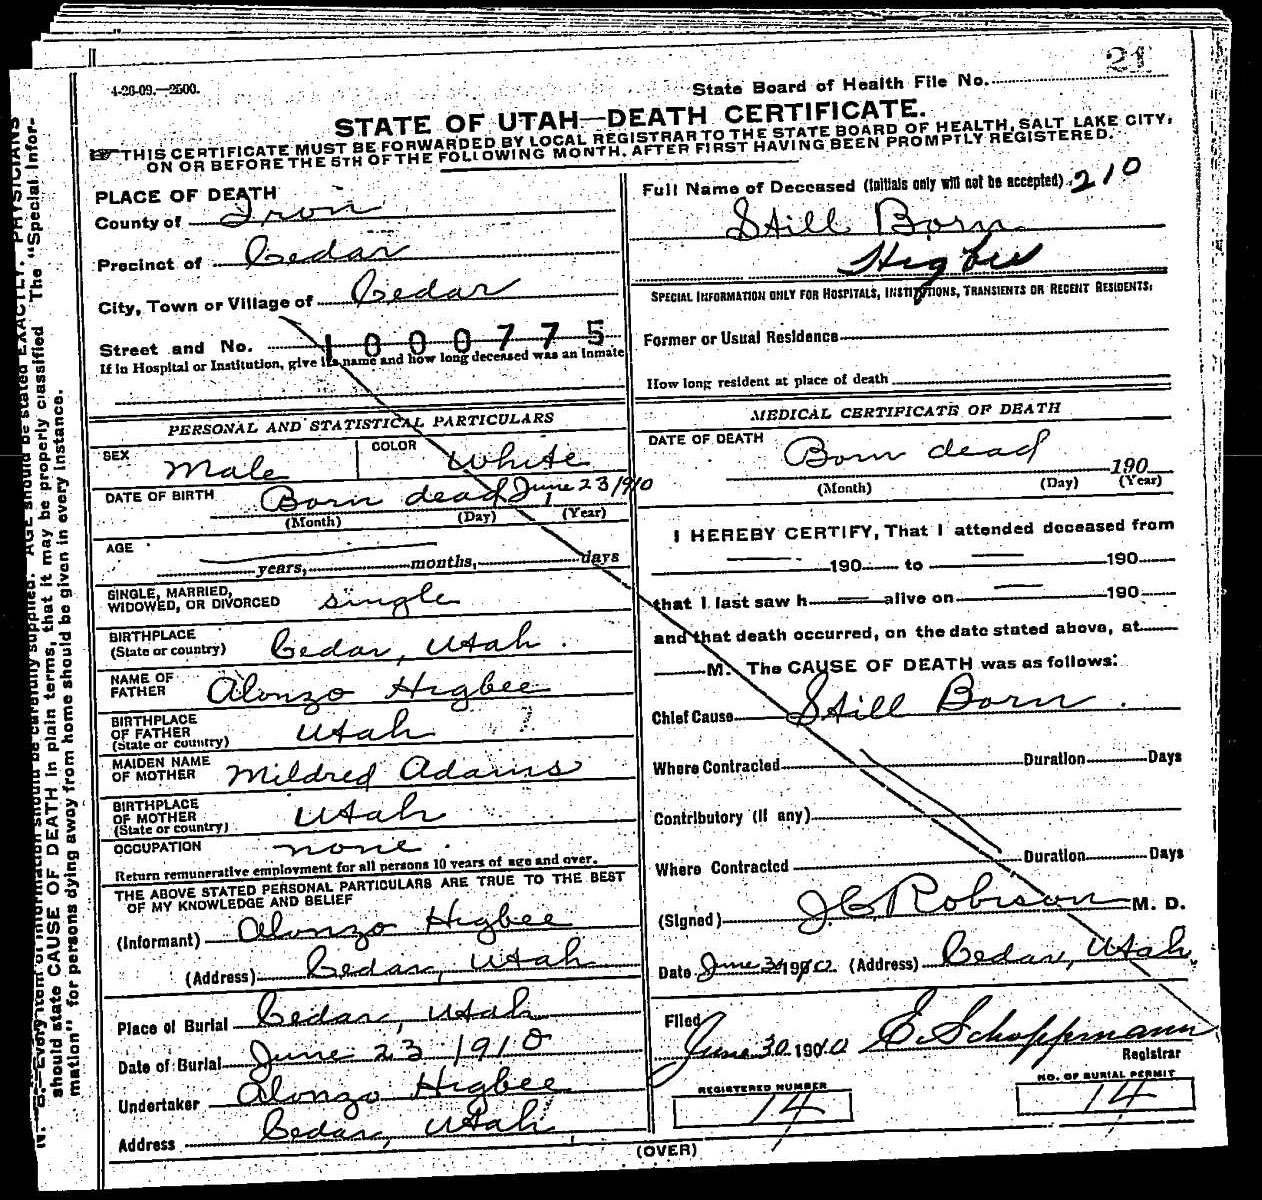 21
4-26-09.—2500.
State Board of Health File No.
STATE OF UTAH—DEATH CERTIFICATE.
THIS CERTIFICATE MUST BE FORWARDED BY LOCAL REGISTRAR TO THE STATE BOARD OF HEALTH, SALT LAKE CITY,
ON OR BEFORE THE 5TH OF THE FOLLOWING MONTH, AFTER FIRST HAVING BEEN PROMPTLY REGISTERED.
PLACE OF DEATH
County of Iron
Precinct of Cedar
City, Town or Village of Cedar
Street and No. 1000775
If in Hospital or Institution, give its name and how long deceased was an inmate
PERSONAL AND STATISTICAL PARTICULARS
SEX Male COLOR White
DATE OF BIRTH Born dead June 23 1910
(Month) (Day) (Year)
AGE
years, months, days
SINGLE, MARRIED,
WIDOWED, OR DIVORCED single
BIRTHPLACE
(State or country) Cedar, Utah.
NAME OF
FATHER Alonzo Higbee
BIRTHPLACE
OF FATHER
(State or country) Utah
MAIDEN NAME
OF MOTHER Mildred Adams
BIRTHPLACE
OF MOTHER
(State or country) Utah
OCCUPATION none.
Return remunerative employment for all persons 10 years of age and over.
THE ABOVE STATED PERSONAL PARTICULARS ARE TRUE TO THE BEST
OF MY KNOWLEDGE AND BELIEF
(Informant) Alonzo Higbee
(Address) Cedar, Utah
Place of Burial Cedar, Utah
Date of Burial June 23 1910
Undertaker Alonzo Higbee
Address Cedar, Utah
Full Name of Deceased (Initials only will not be accepted) 210
Still Born
Higbee
SPECIAL INFORMATION ONLY FOR HOSPITALS, INSTITUTIONS, TRANSIENTS OR RECENT RESIDENTS:
Former or Usual Residence
How long resident at place of death
MEDICAL CERTIFICATE OF DEATH
DATE OF DEATH Born dead 190
(Month) (Day) (Year)
I HEREBY CERTIFY, That I attended deceased from
190 to 190
that I last saw h alive on 190
and that death occurred, on the date stated above, at
M. The CAUSE OF DEATH was as follows:
Chief Cause Still Born.
Where Contracted Duration Days
Contributory (if any)
Where Contracted Duration Days
(Signed) J C Robison M. D.
Date June 3 1910 (Address) Cedar, Utah.
Filed
June 30 1910 E. Schoppmann
Registrar
REGISTERED NUMBER
14
NO. OF BURIAL PERMIT
14
(OVER)
N. B.—Every item of information should be carefully supplied. AGE should be stated EXACTLY. PHYSICIANS
should state CAUSE OF DEATH in plain terms, that it may be properly classified The "Special Infor-
mation" for persons dying away from home should be given in every instance.